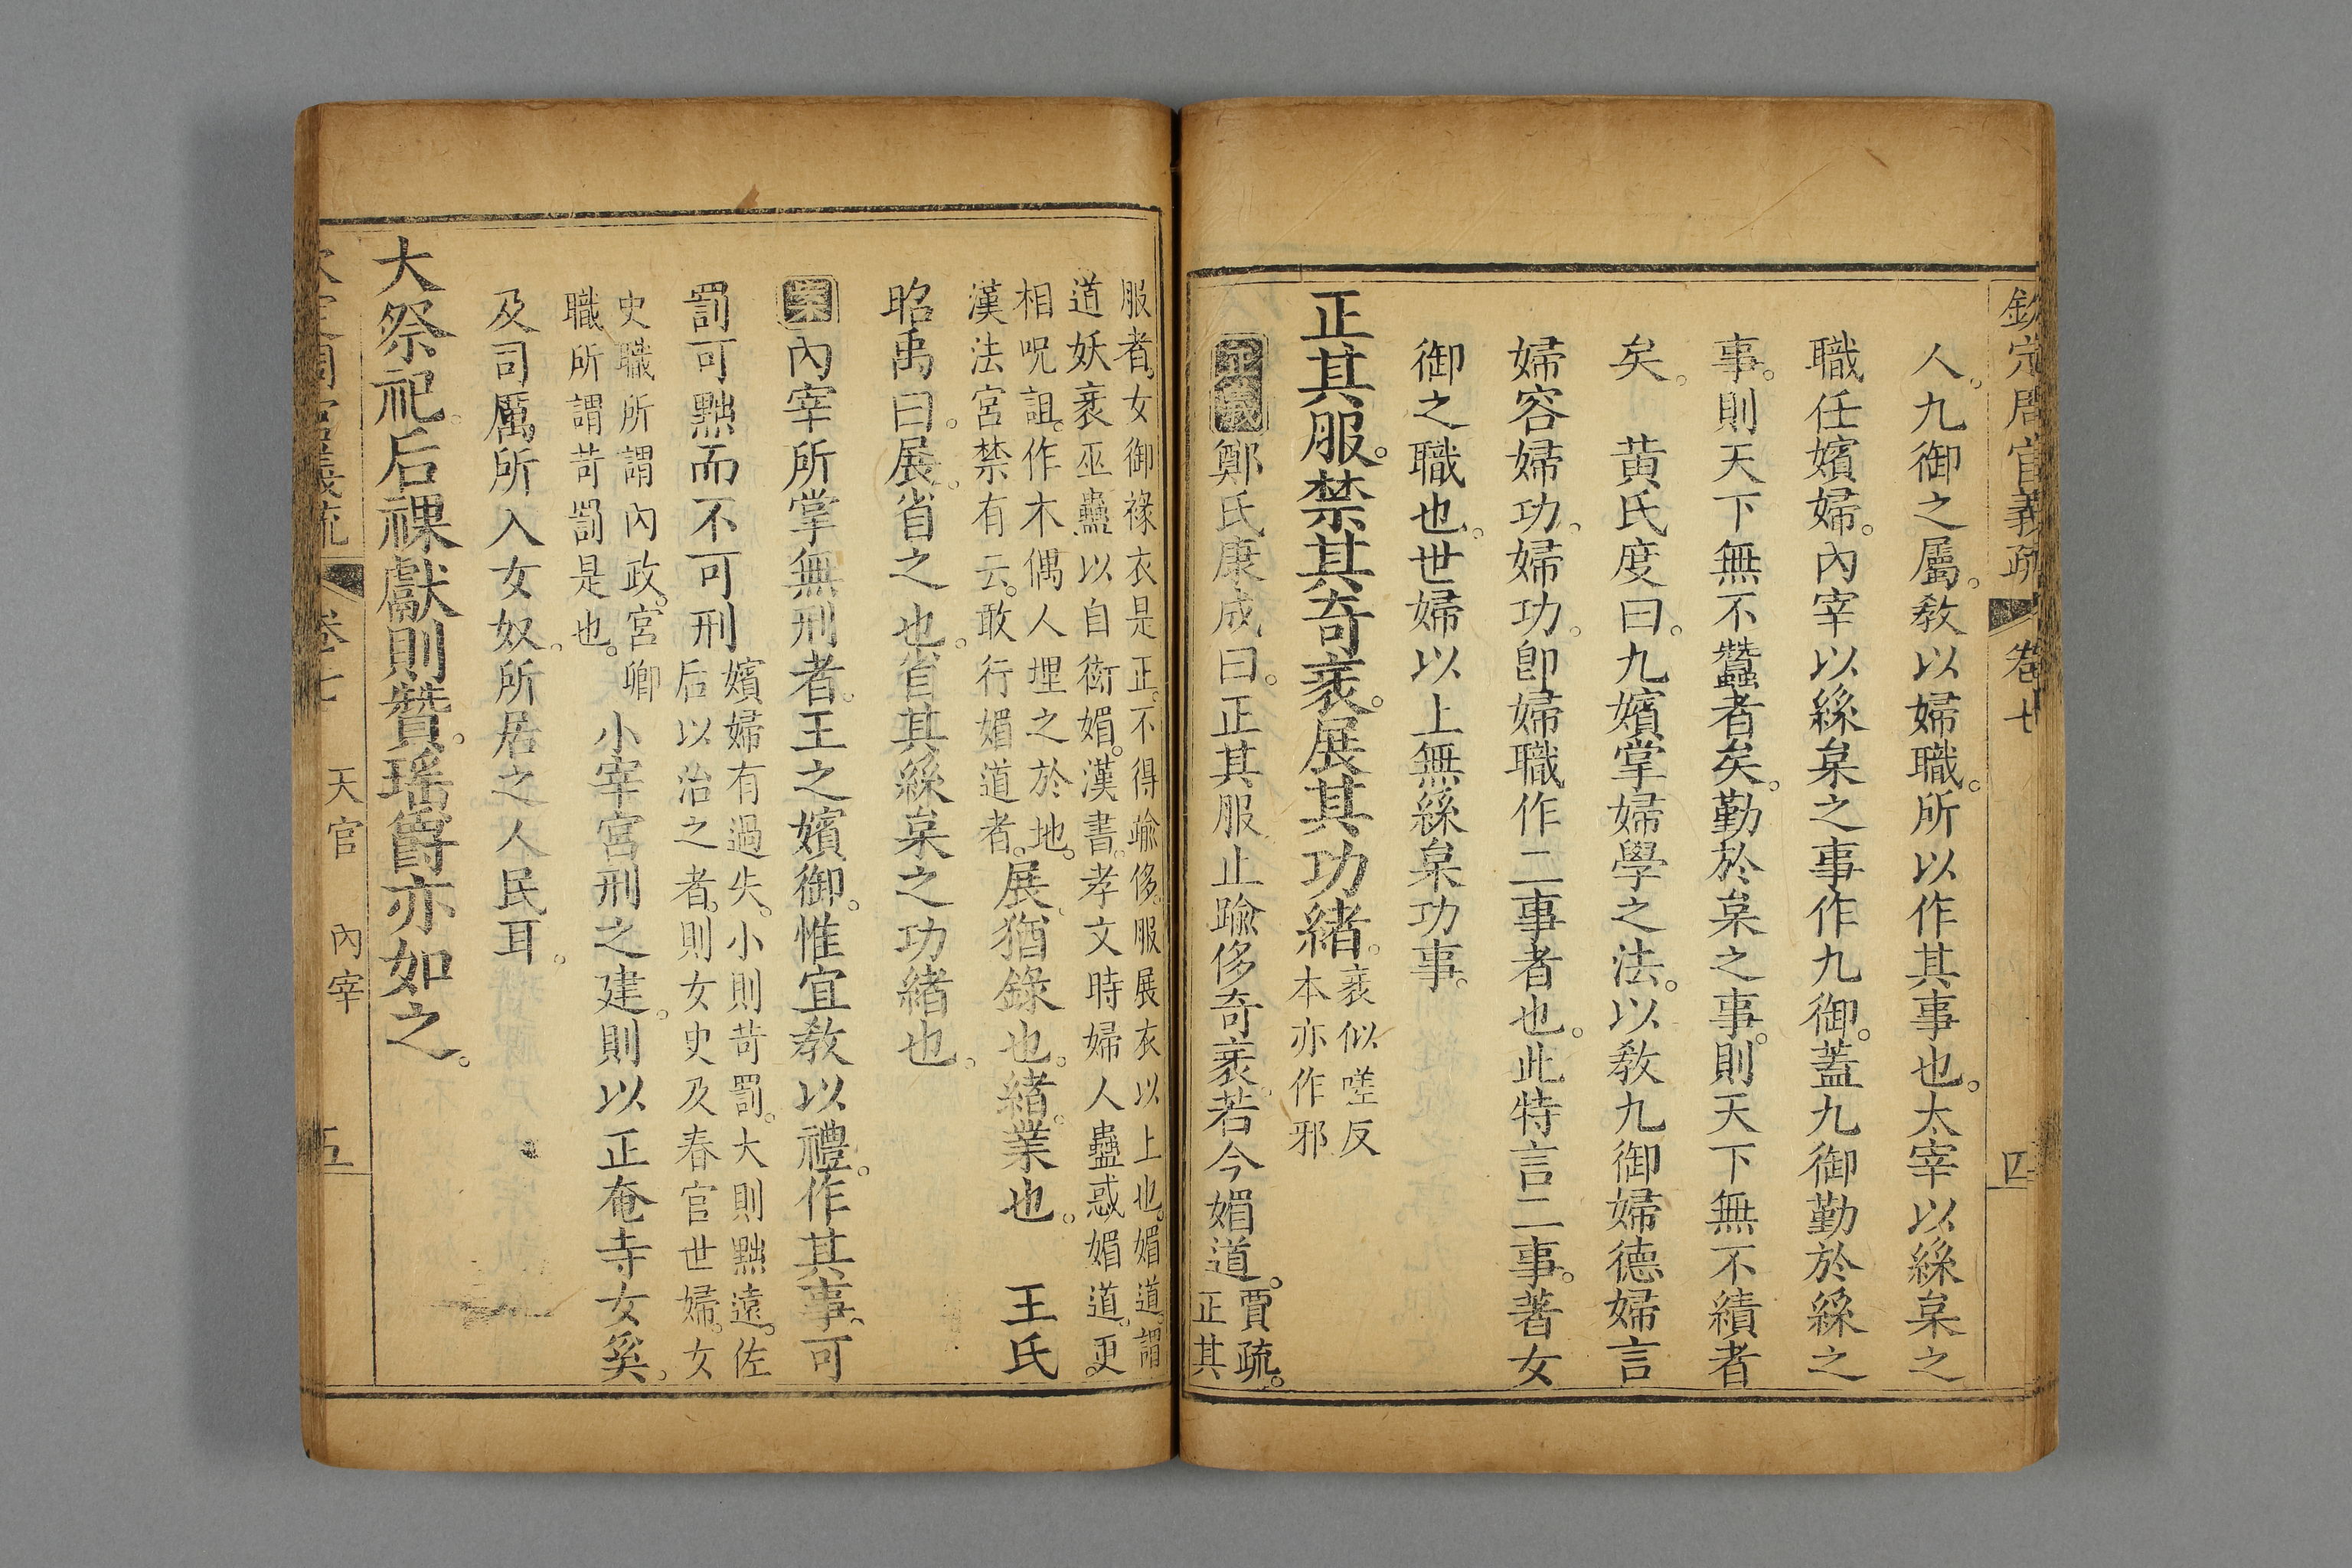 欽定周官義疏 卷七 四
人九御之屬。教以婦職。所以作其事也。太宰以絲枲之
職任嬪婦。內宰以絲枲之事作九御。蓋九御勤於絲之
事。則天下無不蠶者矣。勤於枲之事。則天下無不績者
矣。 黃氏度曰。九嬪掌婦學之法。以敎九御婦德婦言
婦容婦功。婦功。卽婦職作二事者也。此特言二事。著女
御之職也。世婦以上無絲枲功事。
正其服。禁其奇衺。展其功緒。衺似嗟反
本亦作邪
正義鄭氏康成曰。正其服。止踰侈。奇衺。若今媚道。賈疏。
正其
服者。女御褖衣是正。不得踰侈。服展衣以上也。媚道。謂
道妖衺巫蠱以自衒媚。漢書。孝文時婦人蠱惑媚道。更
相呪詛。作木偶人埋之於地。
漢法宮禁有云。敢行媚道者。展猶錄也。緒。業也。 王氏
昭禹曰。展。省之也。省其絲枲之功緒也。
案內宰所掌無刑者。王之嬪御。惟宜敎以禮。作其事。可
罰可黜而不可刑嬪婦有過失。小則苛罰。大則黜遠。佐
后以治之者。則女史及春官世婦。女
史職所謂內政。宮卿
職所謂苛罰是也。小宰宮刑之建。則以正奄寺女奚。
及司厲所入女奴。所居之人民耳。
大祭祀。后祼獻則贊。瑤爵亦如之。
欽定周官義疏 卷七 天官 內宰 五